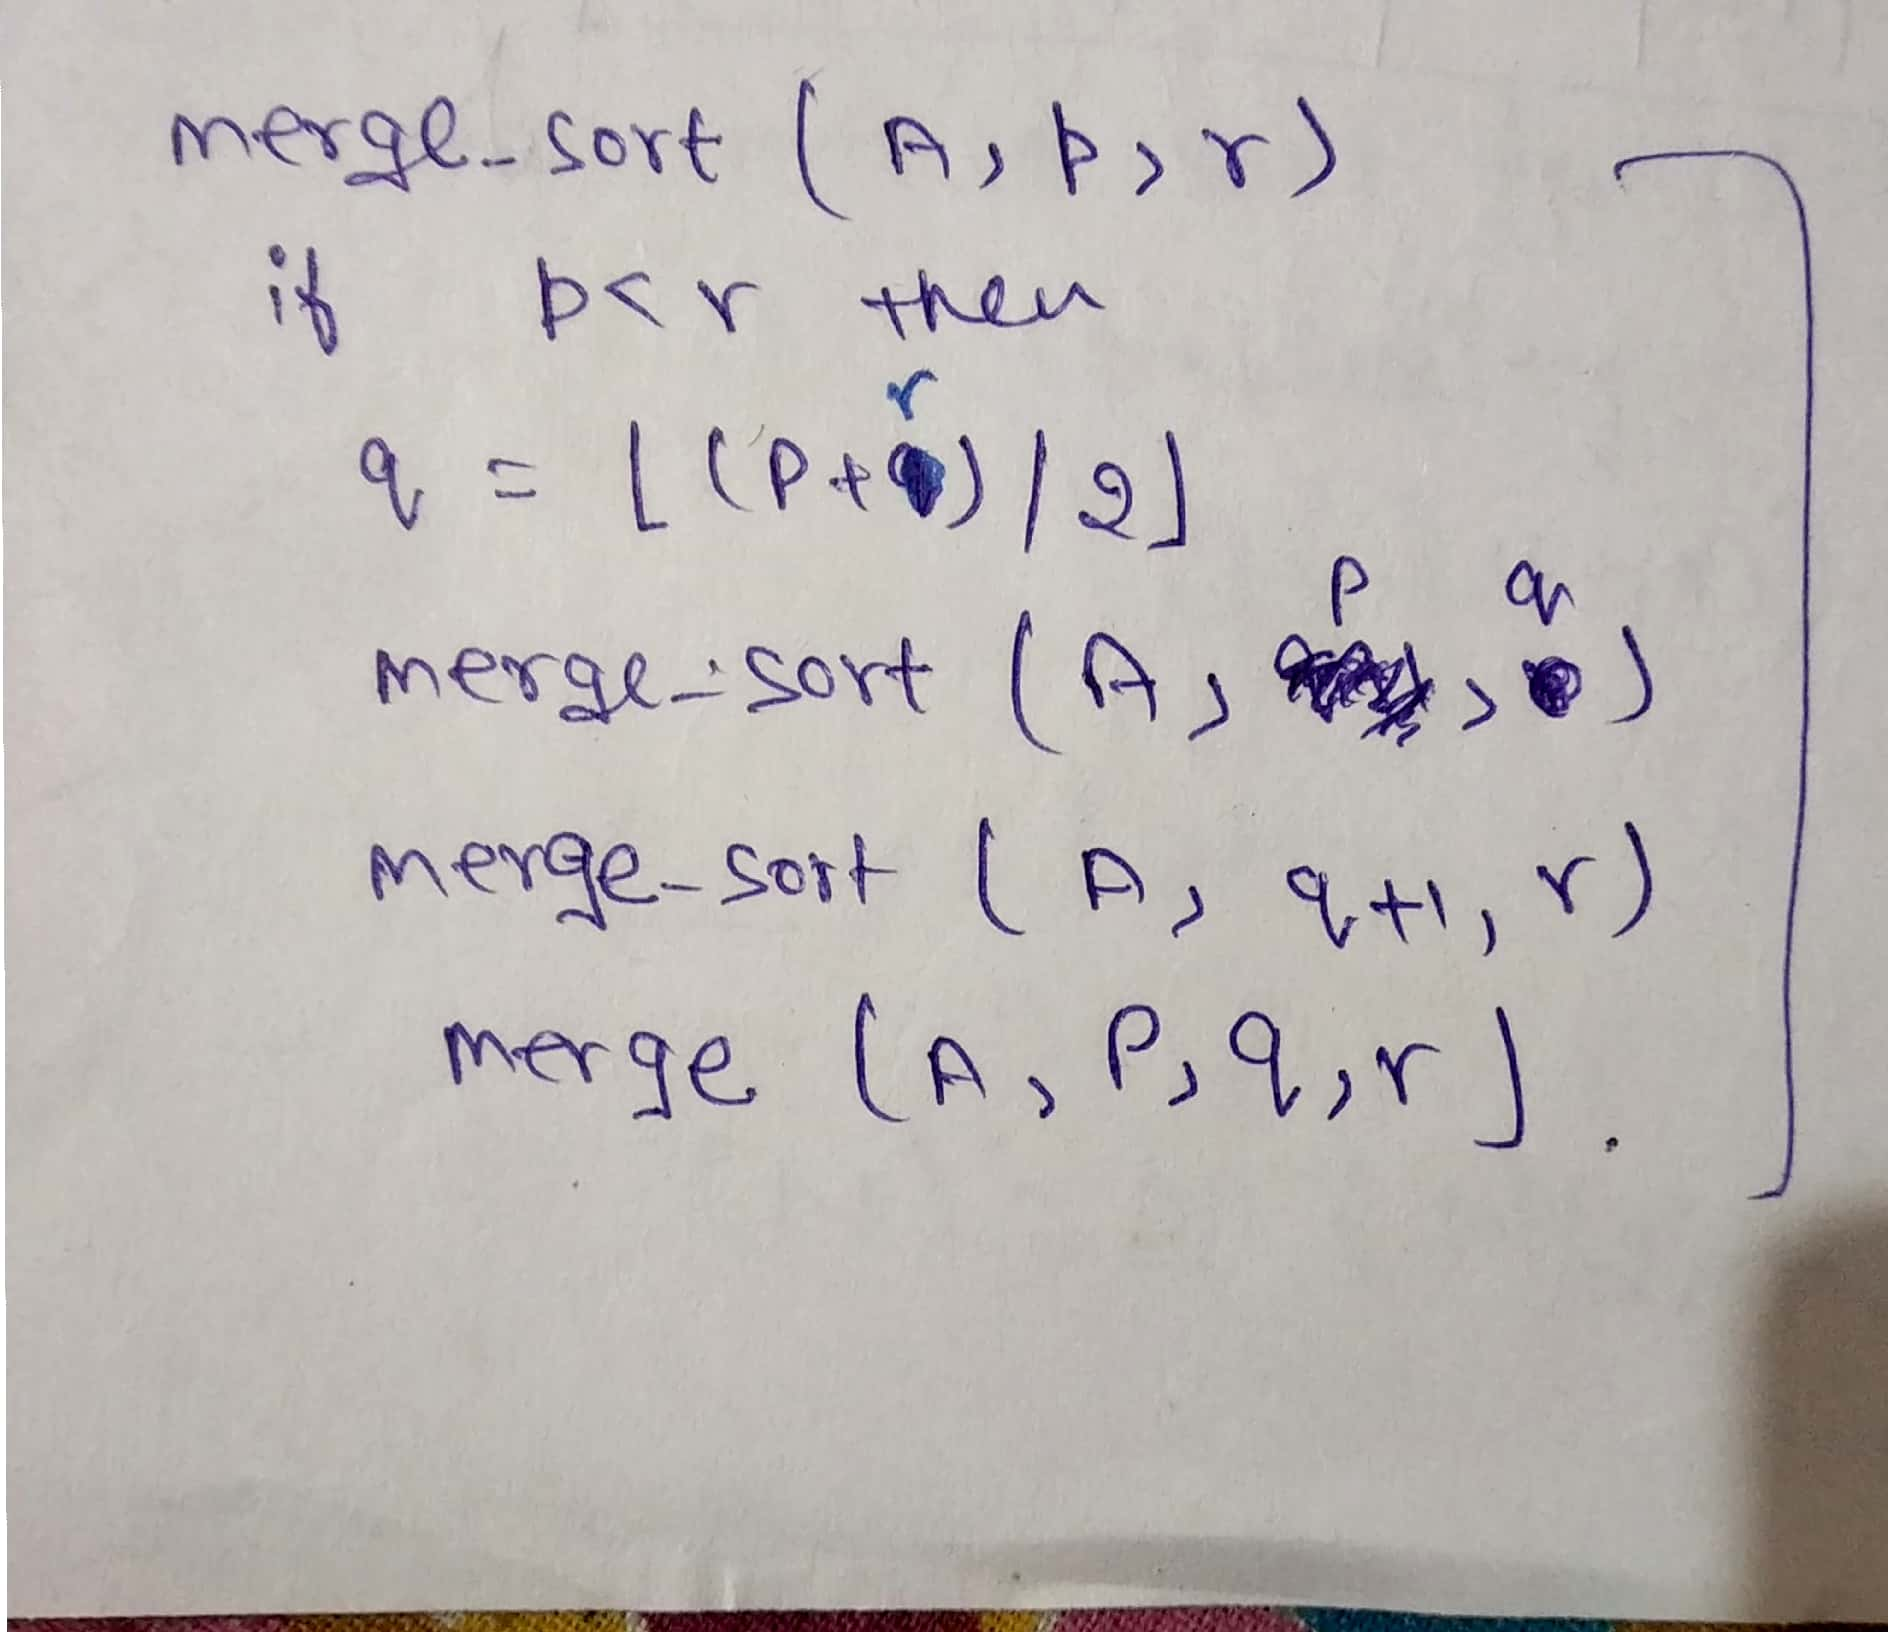 merge-sort (A, p, r)
if p<r then
r
q = ⌊(P+)/2⌋
P q
merge-sort (A, , )
merge-sort (A, q+1, r)
merge (A, P, q, r).